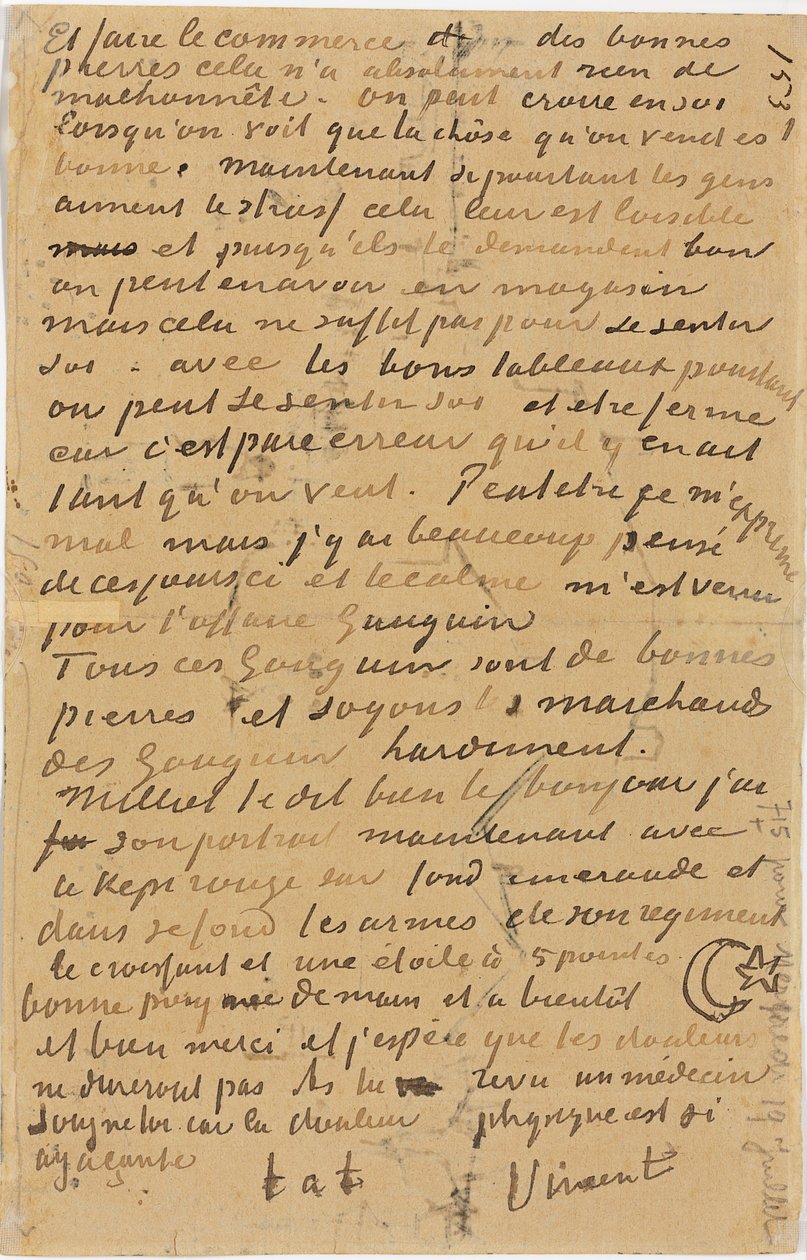 Et faire le commerce des bonnes
pierres cela n'a absolument rien de
malhonnête. on peut croire en soi
lorsqu'on voit que la chôse qu'on vend es
bonne. maintenant si pourtant les gens
aiment le strass cela leur est loisible
mais et puisqu'ils le demandent bon
on peut en avoir en magasin
mais cela ne suffit pas pour se sentir
soi - avec les bons tableaux pourtant
on peut se sentir soi et etre ferme
car c'est pure erreur qu'il y en ait
tant qu'on veut. Peut etre je m'exprime
mal mais j'y ai beaucoup pensé
de ces jours ci et le calme m'est venu
pour l'affaire Gauguin
Tous ces Gauguin sont de bonnes
pierres et soyons les marchands
des Gauguin hardiment.
Milliet te dit bien le bonjour j'ai
son portrait maintenant avec
le Kepi rouge sur fond emeraude et
dans ce fond les armes de son regiment
le croissant et une étoile à 5 pointes
bonne poignee de main et a bientôt
et bien merci et j'espère que les douleurs
ne dureront pas As tu revu un médecin
Soigne toi car la douleur physique est si
agaçante
t a t Vincent
153
715
19 Juillet